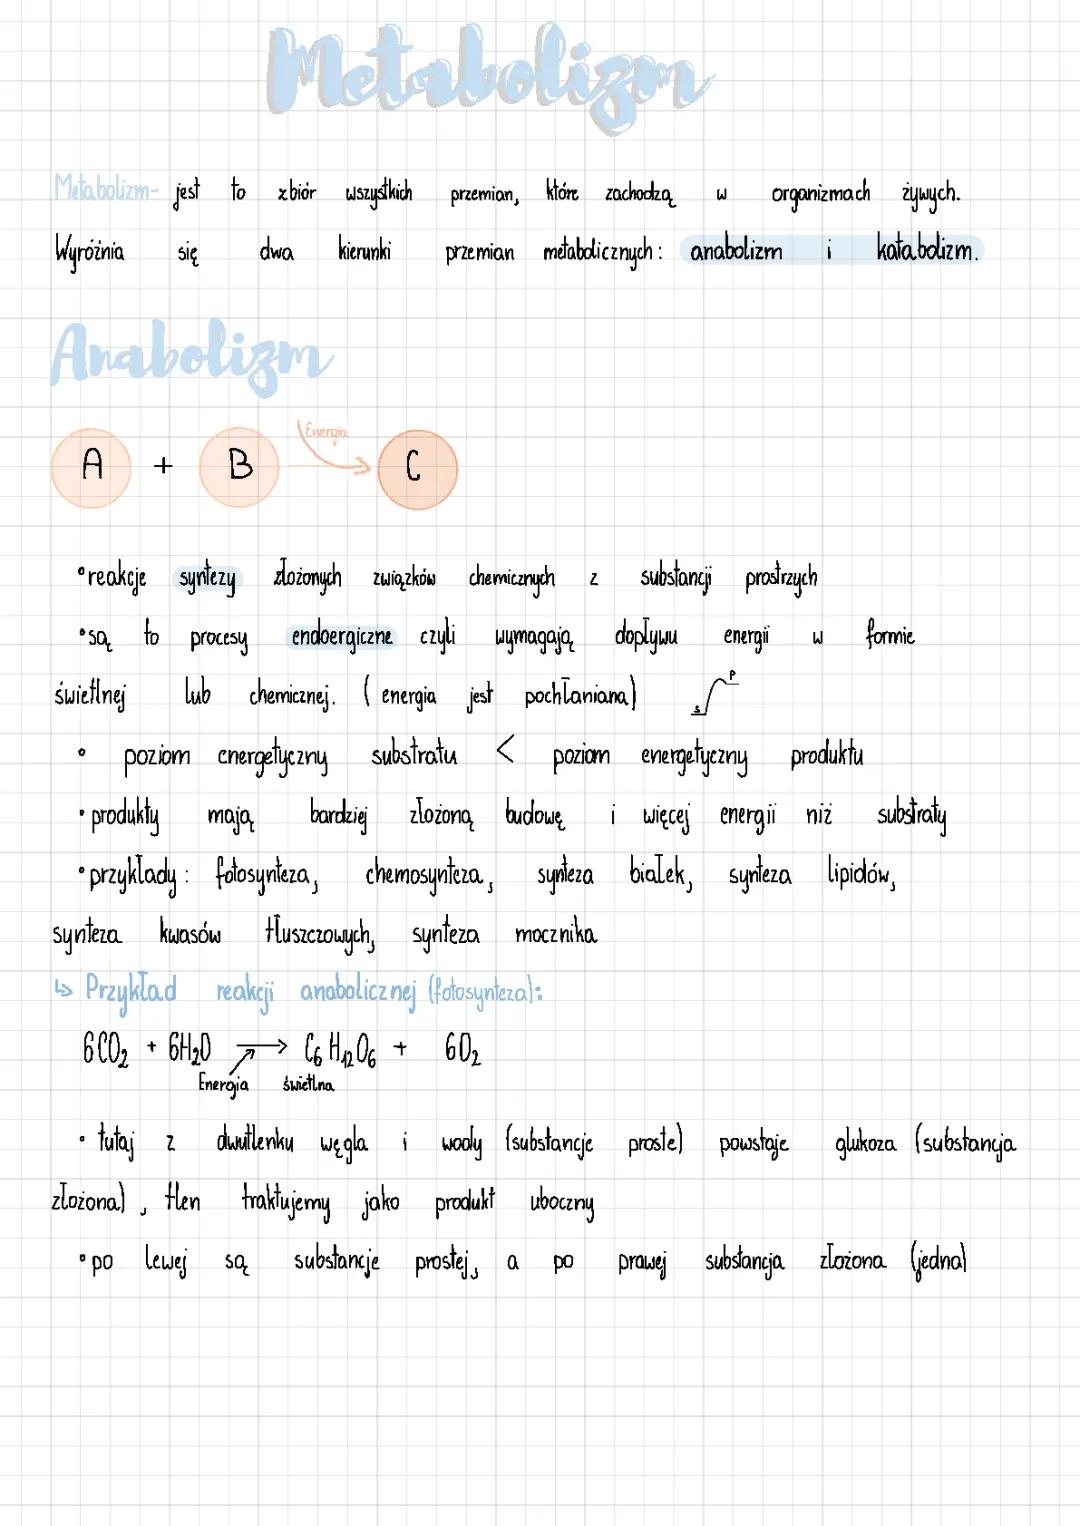 Metabolizm
Metabolizm- jest to zbiór wszystkich przemian, które zachodzą w organizmach żywych.
Wyróżnia się dwa kierunki przemian metabolicznych: anabolizm i katabolizm.
Anabolizm
A + B Energia C
•reakcje syntezy złożonych związków chemicznych z substancji prostrzych
•są to procesy endoergiczne czyli wymagają dopływu energii w formie
świetlnej lub chemicznej. (energia jest pochłaniana) S P
• poziom energetyczny substratu < poziom energetyczny produktu
•produkty mają bardziej złożoną budowę i więcej energii niż substraty
•przykłady: fotosynteza, chemosynteza, synteza białek, synteza lipidów,
synteza kwasów tłuszczowych, synteza mocznika
↳ Przykład reakcji anabolicznej (fotosynteza):
6CO₂ + 6H₂O → C₆H₁₂O₆ + 6O₂
Energia świetlna
• tutaj z dwutlenku węgla i wody (substancje proste) powstaje glukoza (substancja
złożona), tlen traktujemy jako produkt uboczny
•po lewej są substancje prostej, a po prawej substancja złożona (jedna)